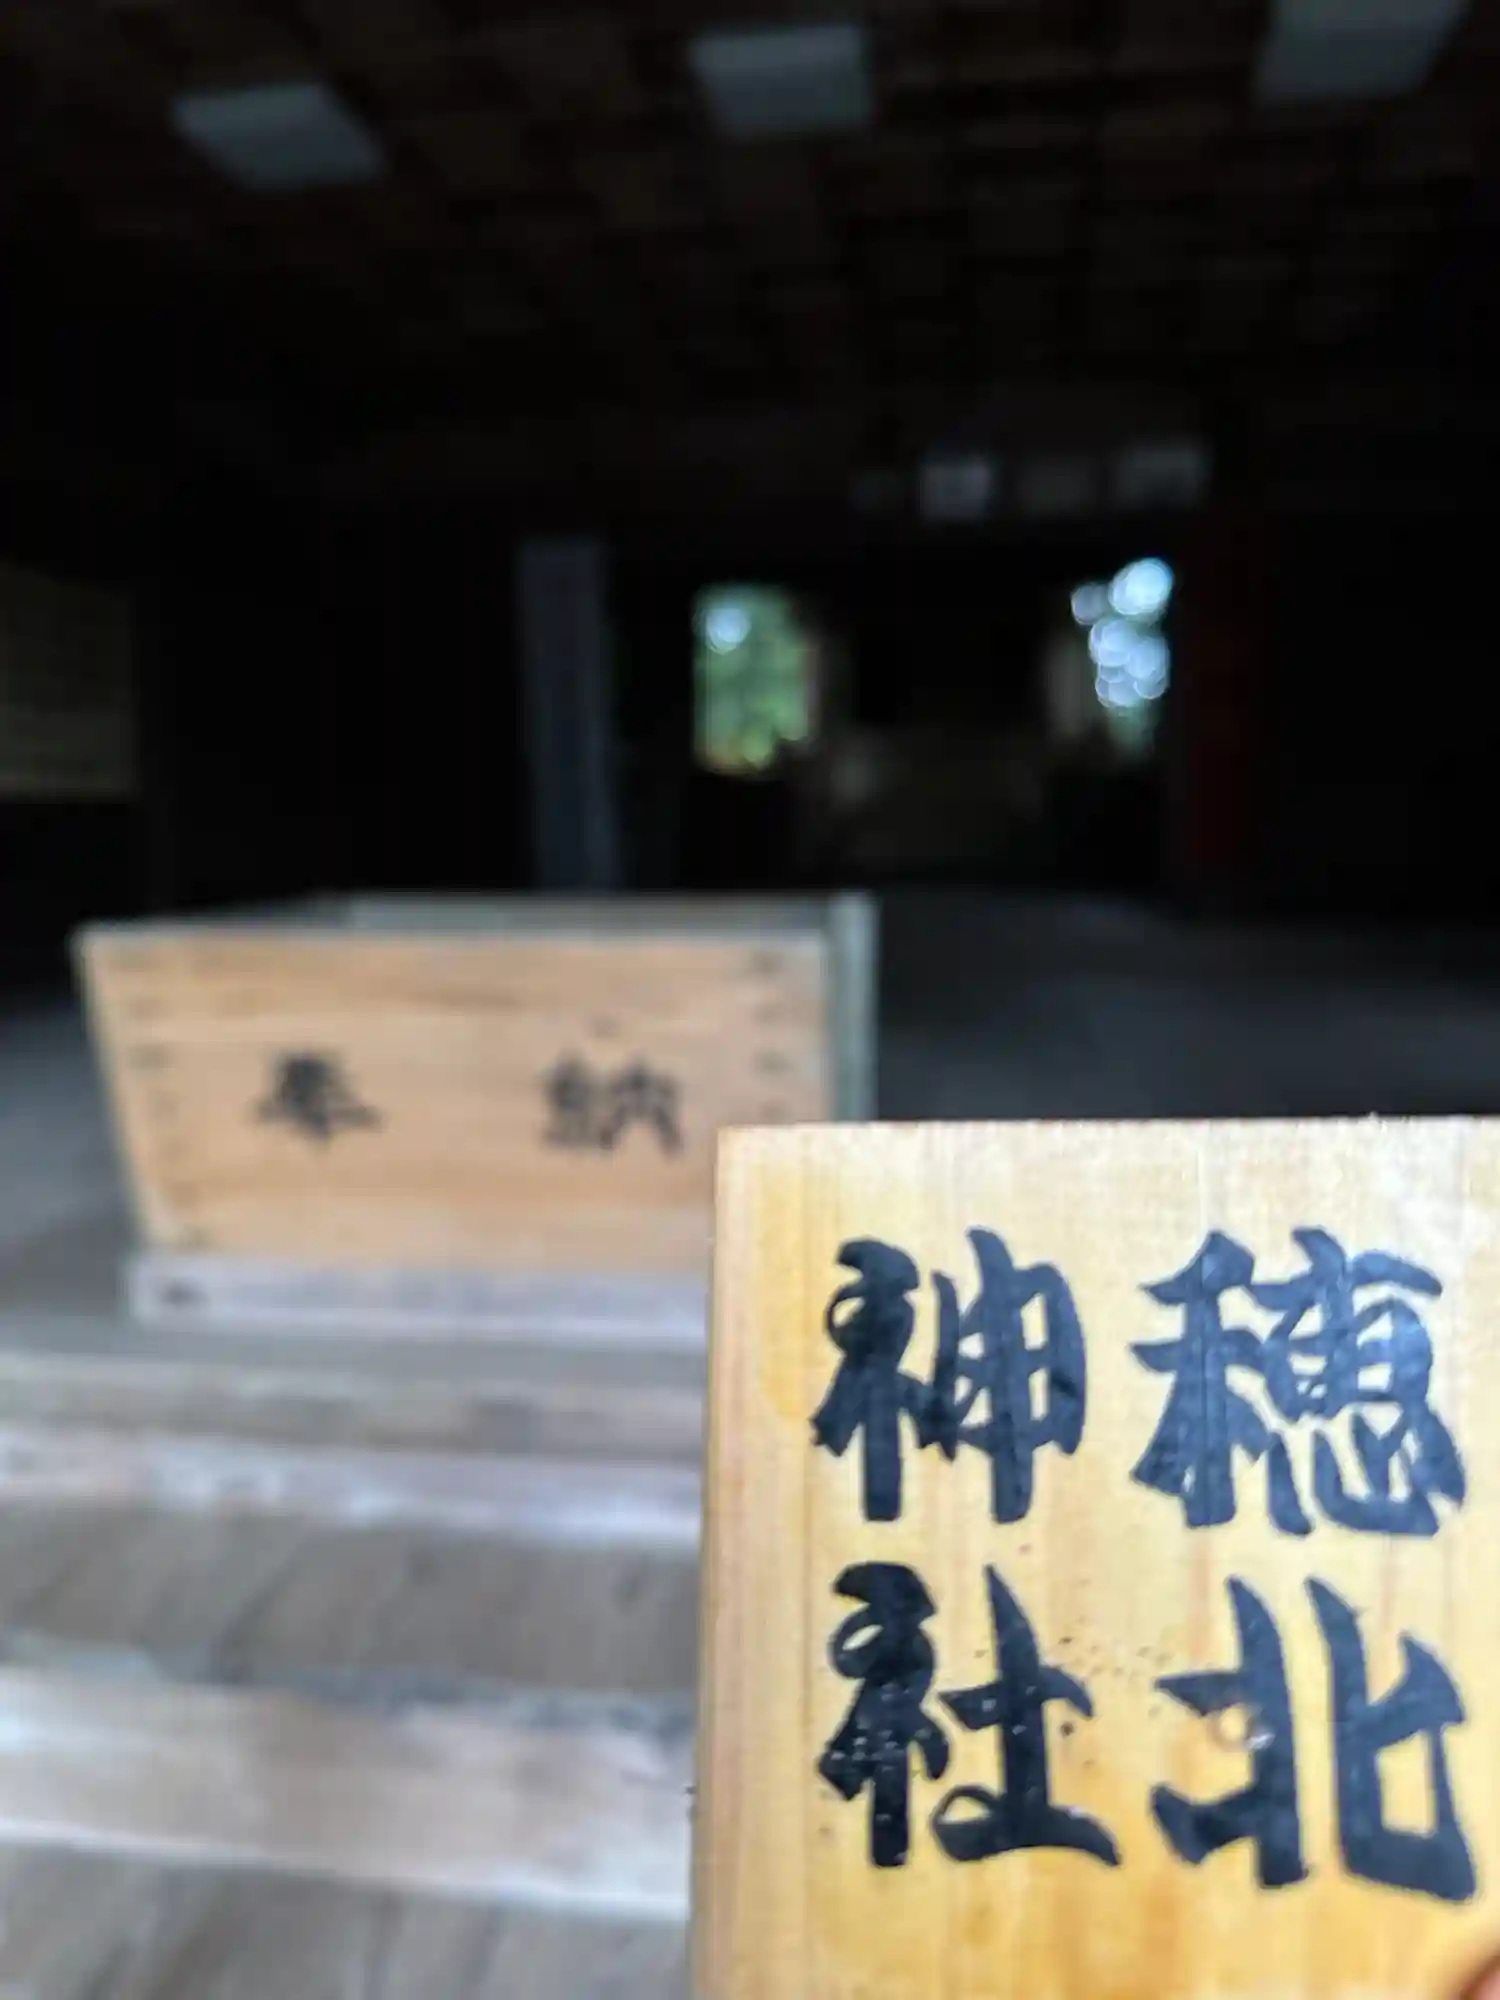 奉納
穂北
神社